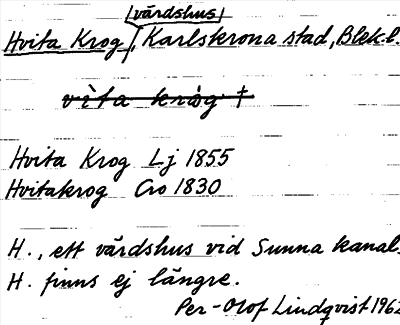 värdshus
Hvita Krog, Karlskrona stad, Blek. l.
vìta kråg †
Hvita Krog Lj 1855
Hvitakrog Cro 1830
H., ett värdshus vid Sunna kanal.
H. finns ej längre.
Per-Olof Lindqvist 1962